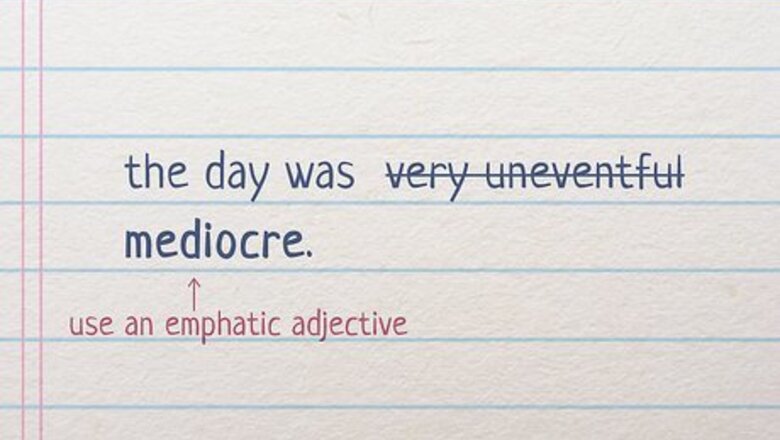 the day was very uneventful
mediocre.
use an emphatic adjective